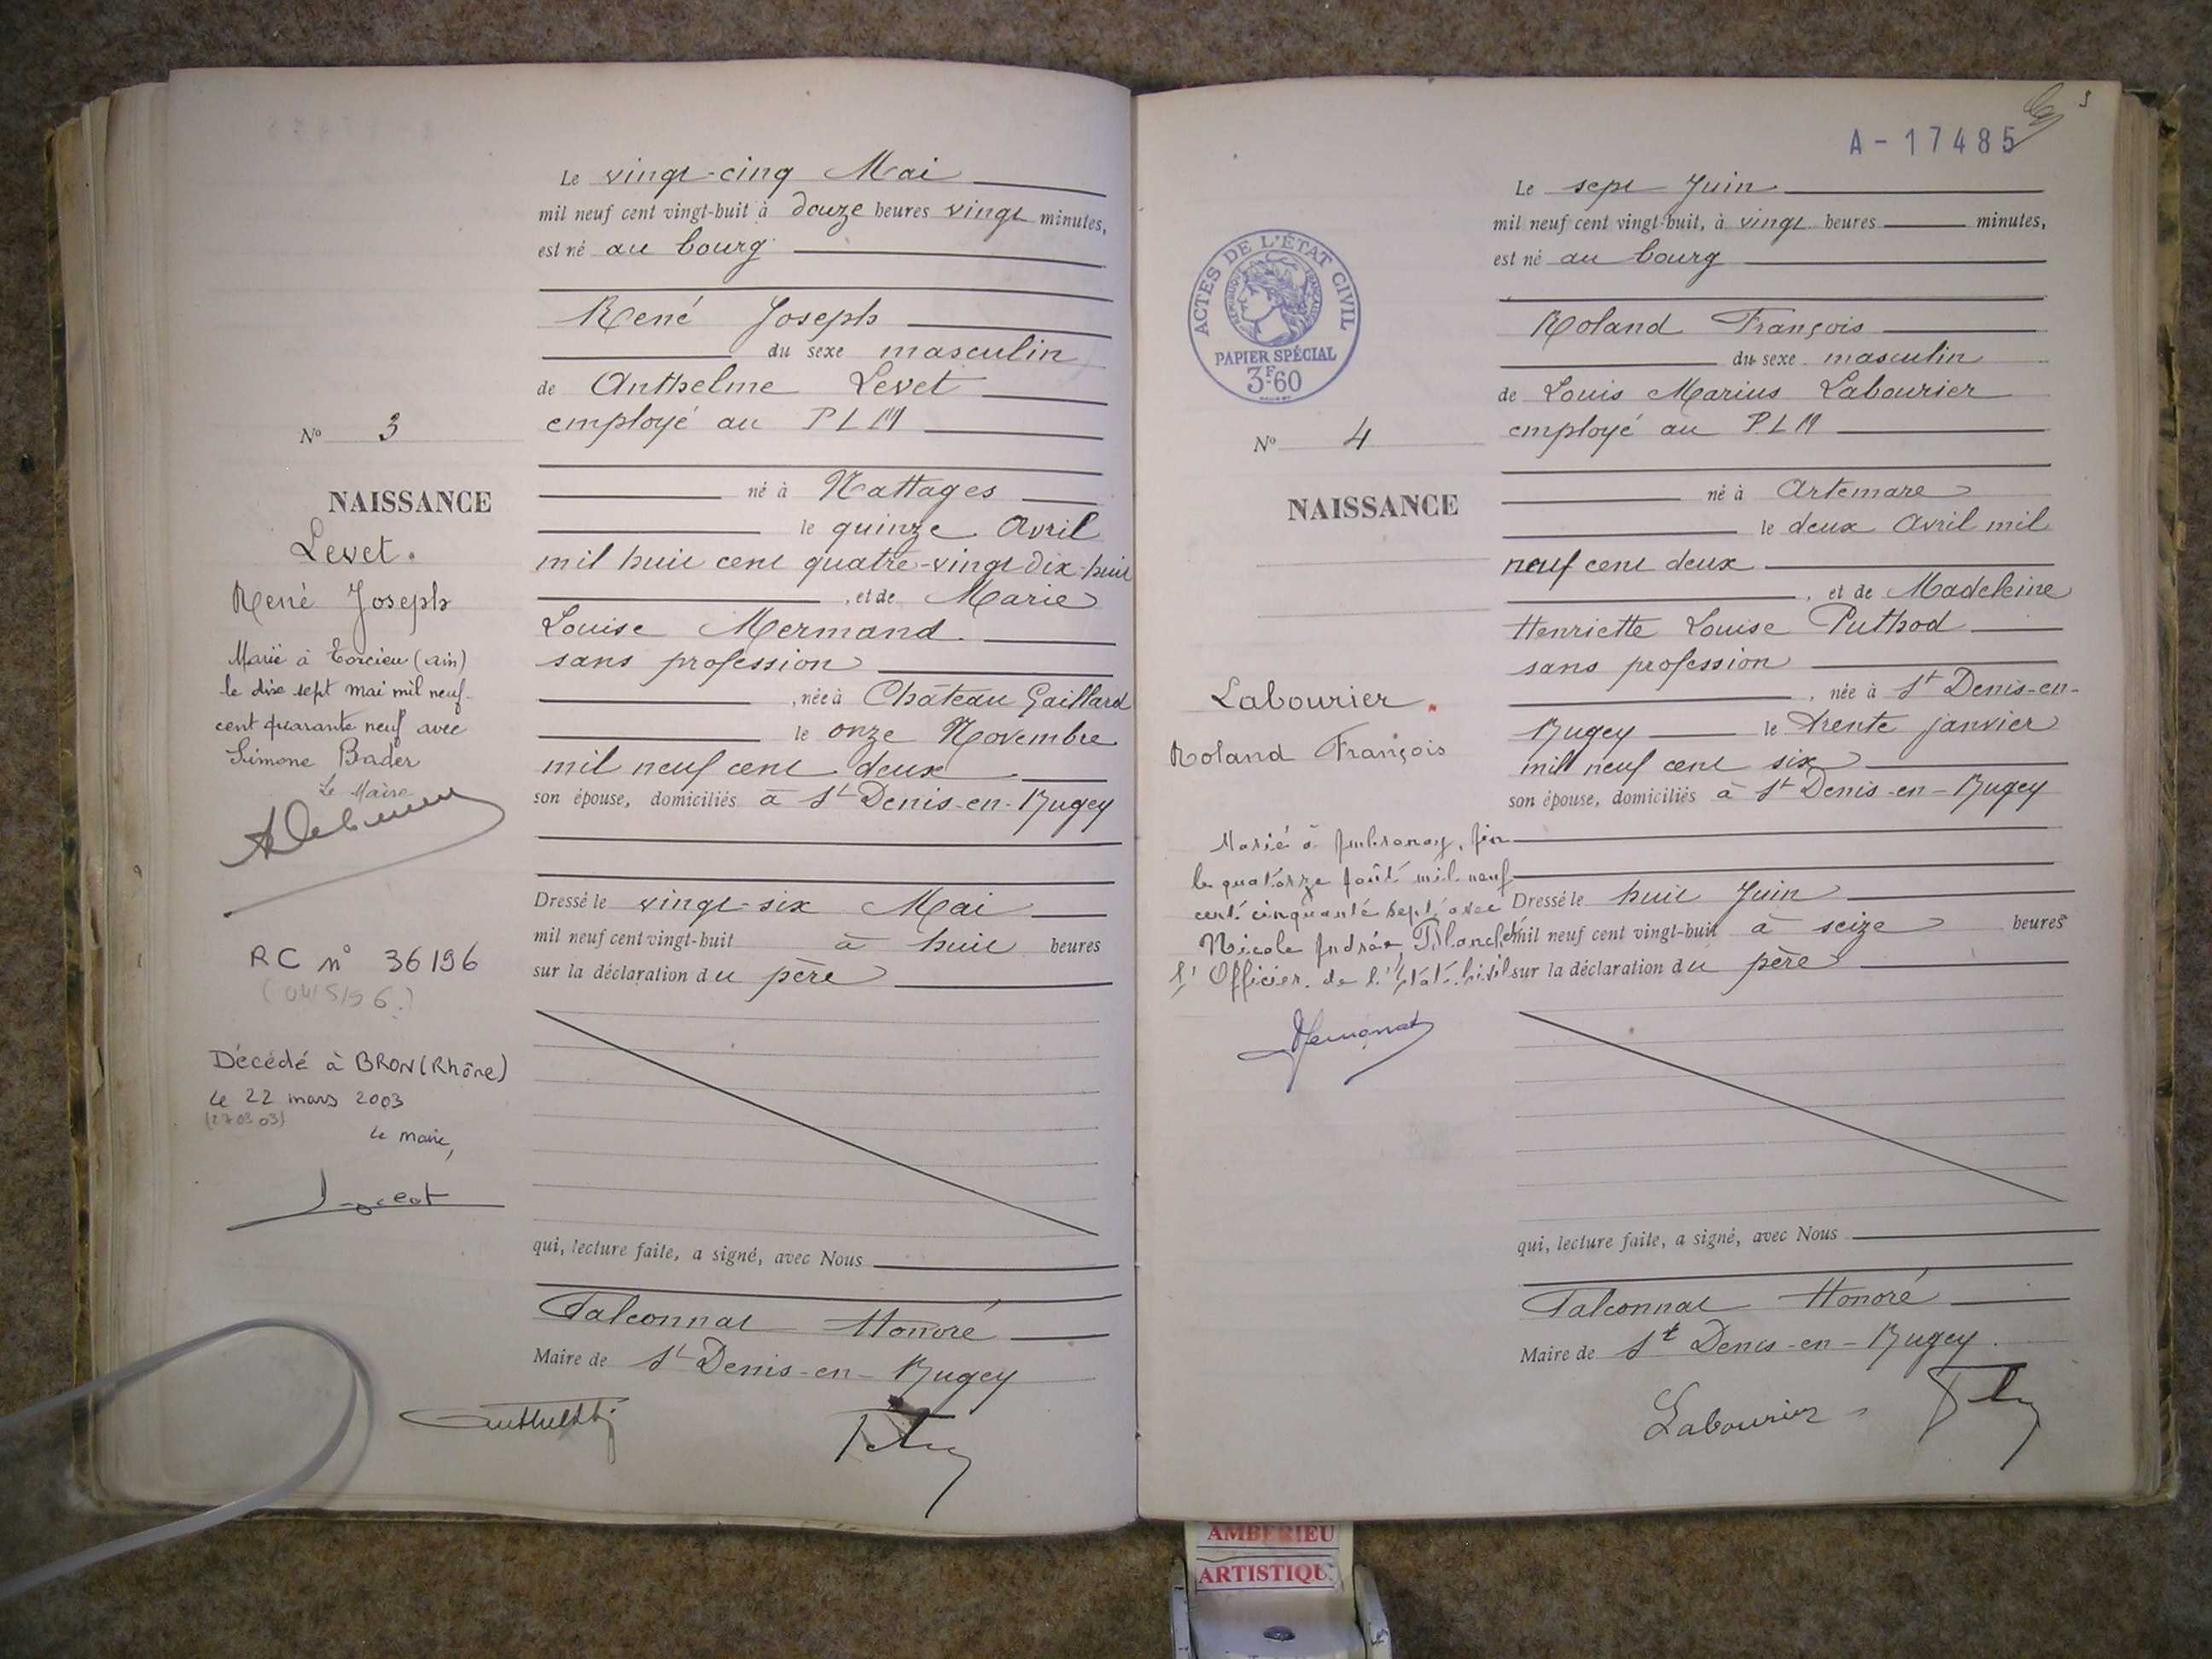 Le vingt-cinq Mai
mil neuf cent vingt-huit à douze heures vingt minutes,
est né au bourg
René Joseph
du sexe masculin
de Anthelme Levet
employé au PLM
né à Nattages
le quinze Avril
mil huit cent quatre-vingt dix-huit
, et de Marie
Louise Mermand
sans profession
, née à Château Gaillard
le onze Novembre
mil neuf cent deux
son épouse, domiciliés à St Denis-en-Bugey
Dressé le vingt-six Mai
mil neuf cent vingt-huit à huit heures
sur la déclaration du père
qui, lecture faite, a signé, avec Nous
Falconnat Honoré
Maire de St Denis-en-Bugey
No 3
NAISSANCE
Levet.
René Joseph
Marié à Torcieu (ain)
le dix sept mai mil neuf
cent quarante neuf avec
Simone Bader
Le Maire
RC n° 36196
Décédé à BRON (Rhône)
Le 22 mars 2003
(27 03 03)
Le maire,
A - 17485
Le sept Juin
mil neuf cent vingt-huit, à vingt heures minutes,
est né au bourg
Roland François
du sexe masculin
de Louis Marius Labourier
employé au PLM
né à Artemare
le deux Avril mil
neuf cent deux
, et de Madeleine
Henriette Louise Puthod
sans profession
, née à St Denis-en-
Bugey le trente janvier
mil neuf cent six
son épouse, domiciliés à St Denis-en-Bugey
Dressé le huit Juin
mil neuf cent vingt-huit à seize heures
sur la déclaration du père
qui, lecture faite, a signé, avec Nous
Falconnat Honoré
Maire de St Denis-en-Bugey.
Labourier
ACTES DE L'ÉTAT CIVIL
RÉPUBLIQUE FRANÇAISE
PAPIER SPÉCIAL
3F.60
No 4
NAISSANCE
Labourier.
Roland François
Marié à Ambronay, Ain
le quatorze Août mil neuf
cent cinquante sept avec
Nicole Andrée Blanchet
L'Officier de l'Etat Civil
AMBERIEU
ARTISTIQU